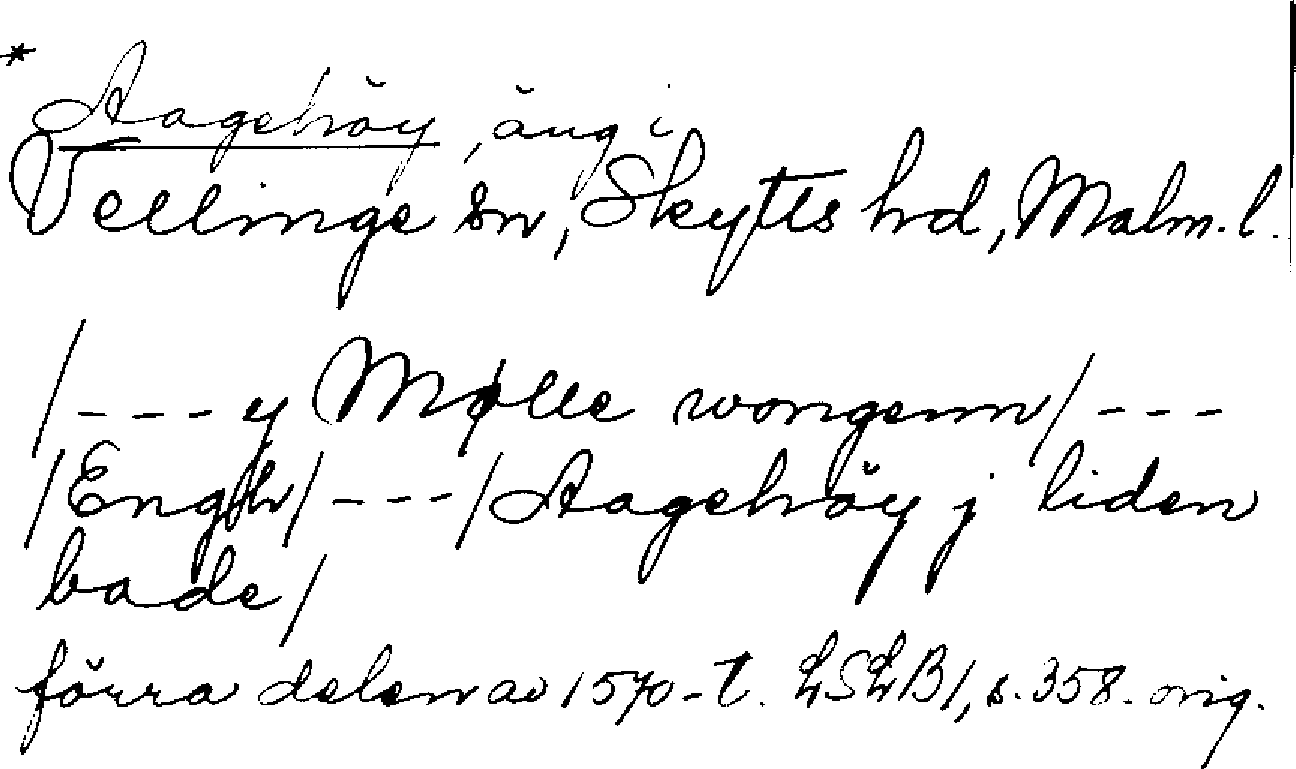 * Aagehöy, äng i
Vellinge sn, Skytts hd, Malm. l.
/--- y Mølle wongenn/---
/Engh/---/Aagehöy j liden
bade/
förra delen av 1570-t. LSLB1, s. 358. orig.